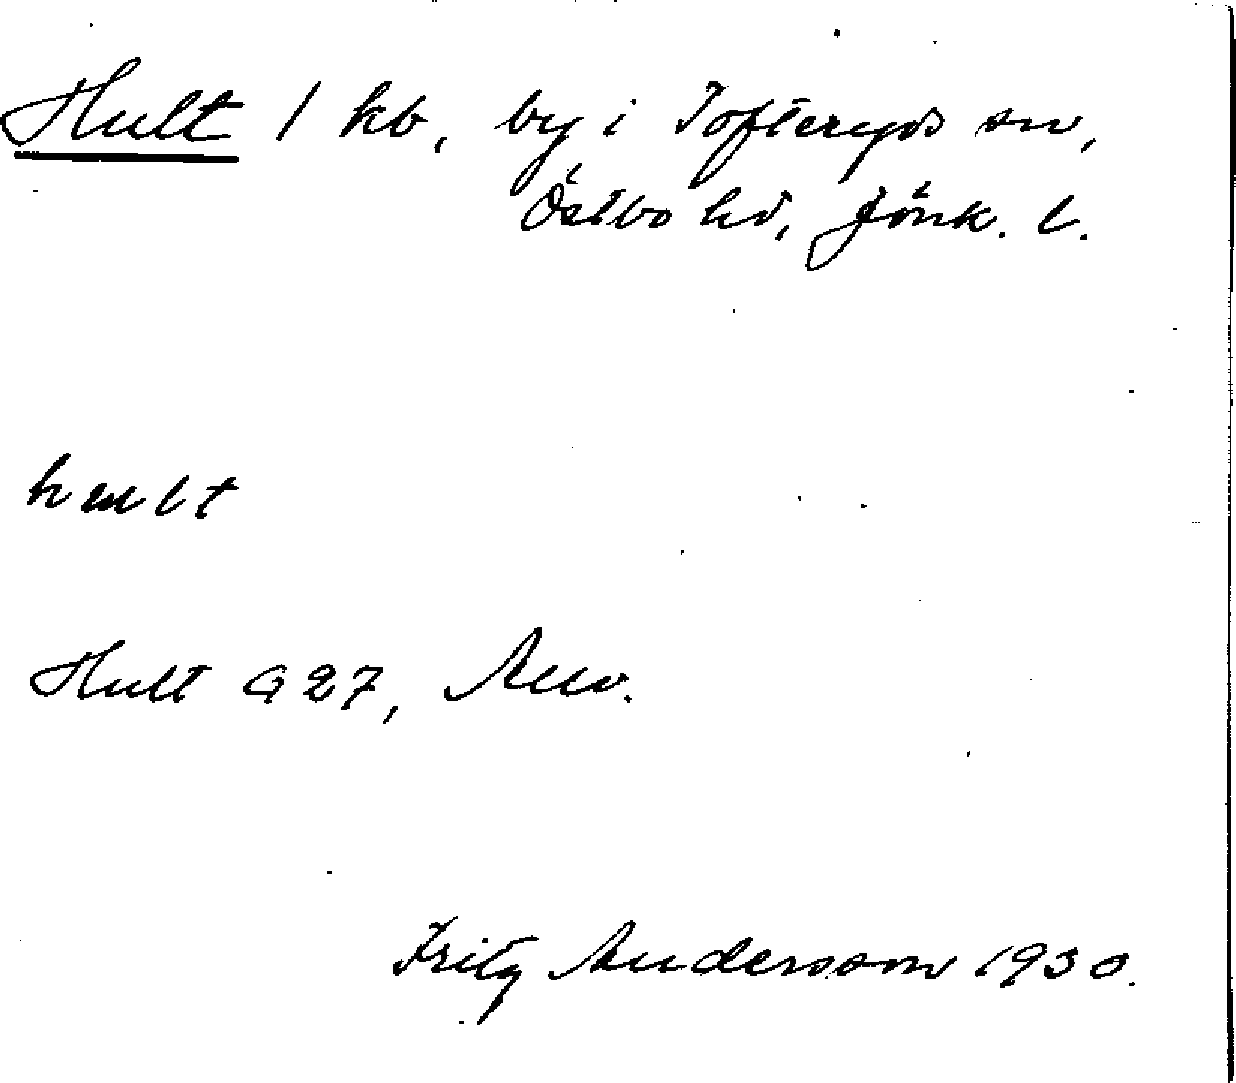 Hult 1 kb, by i Tofteryds sn,
Östbo hd, Jönk. l.
hult
Hult G 27, Anv.
Fritz Andersson 1930.